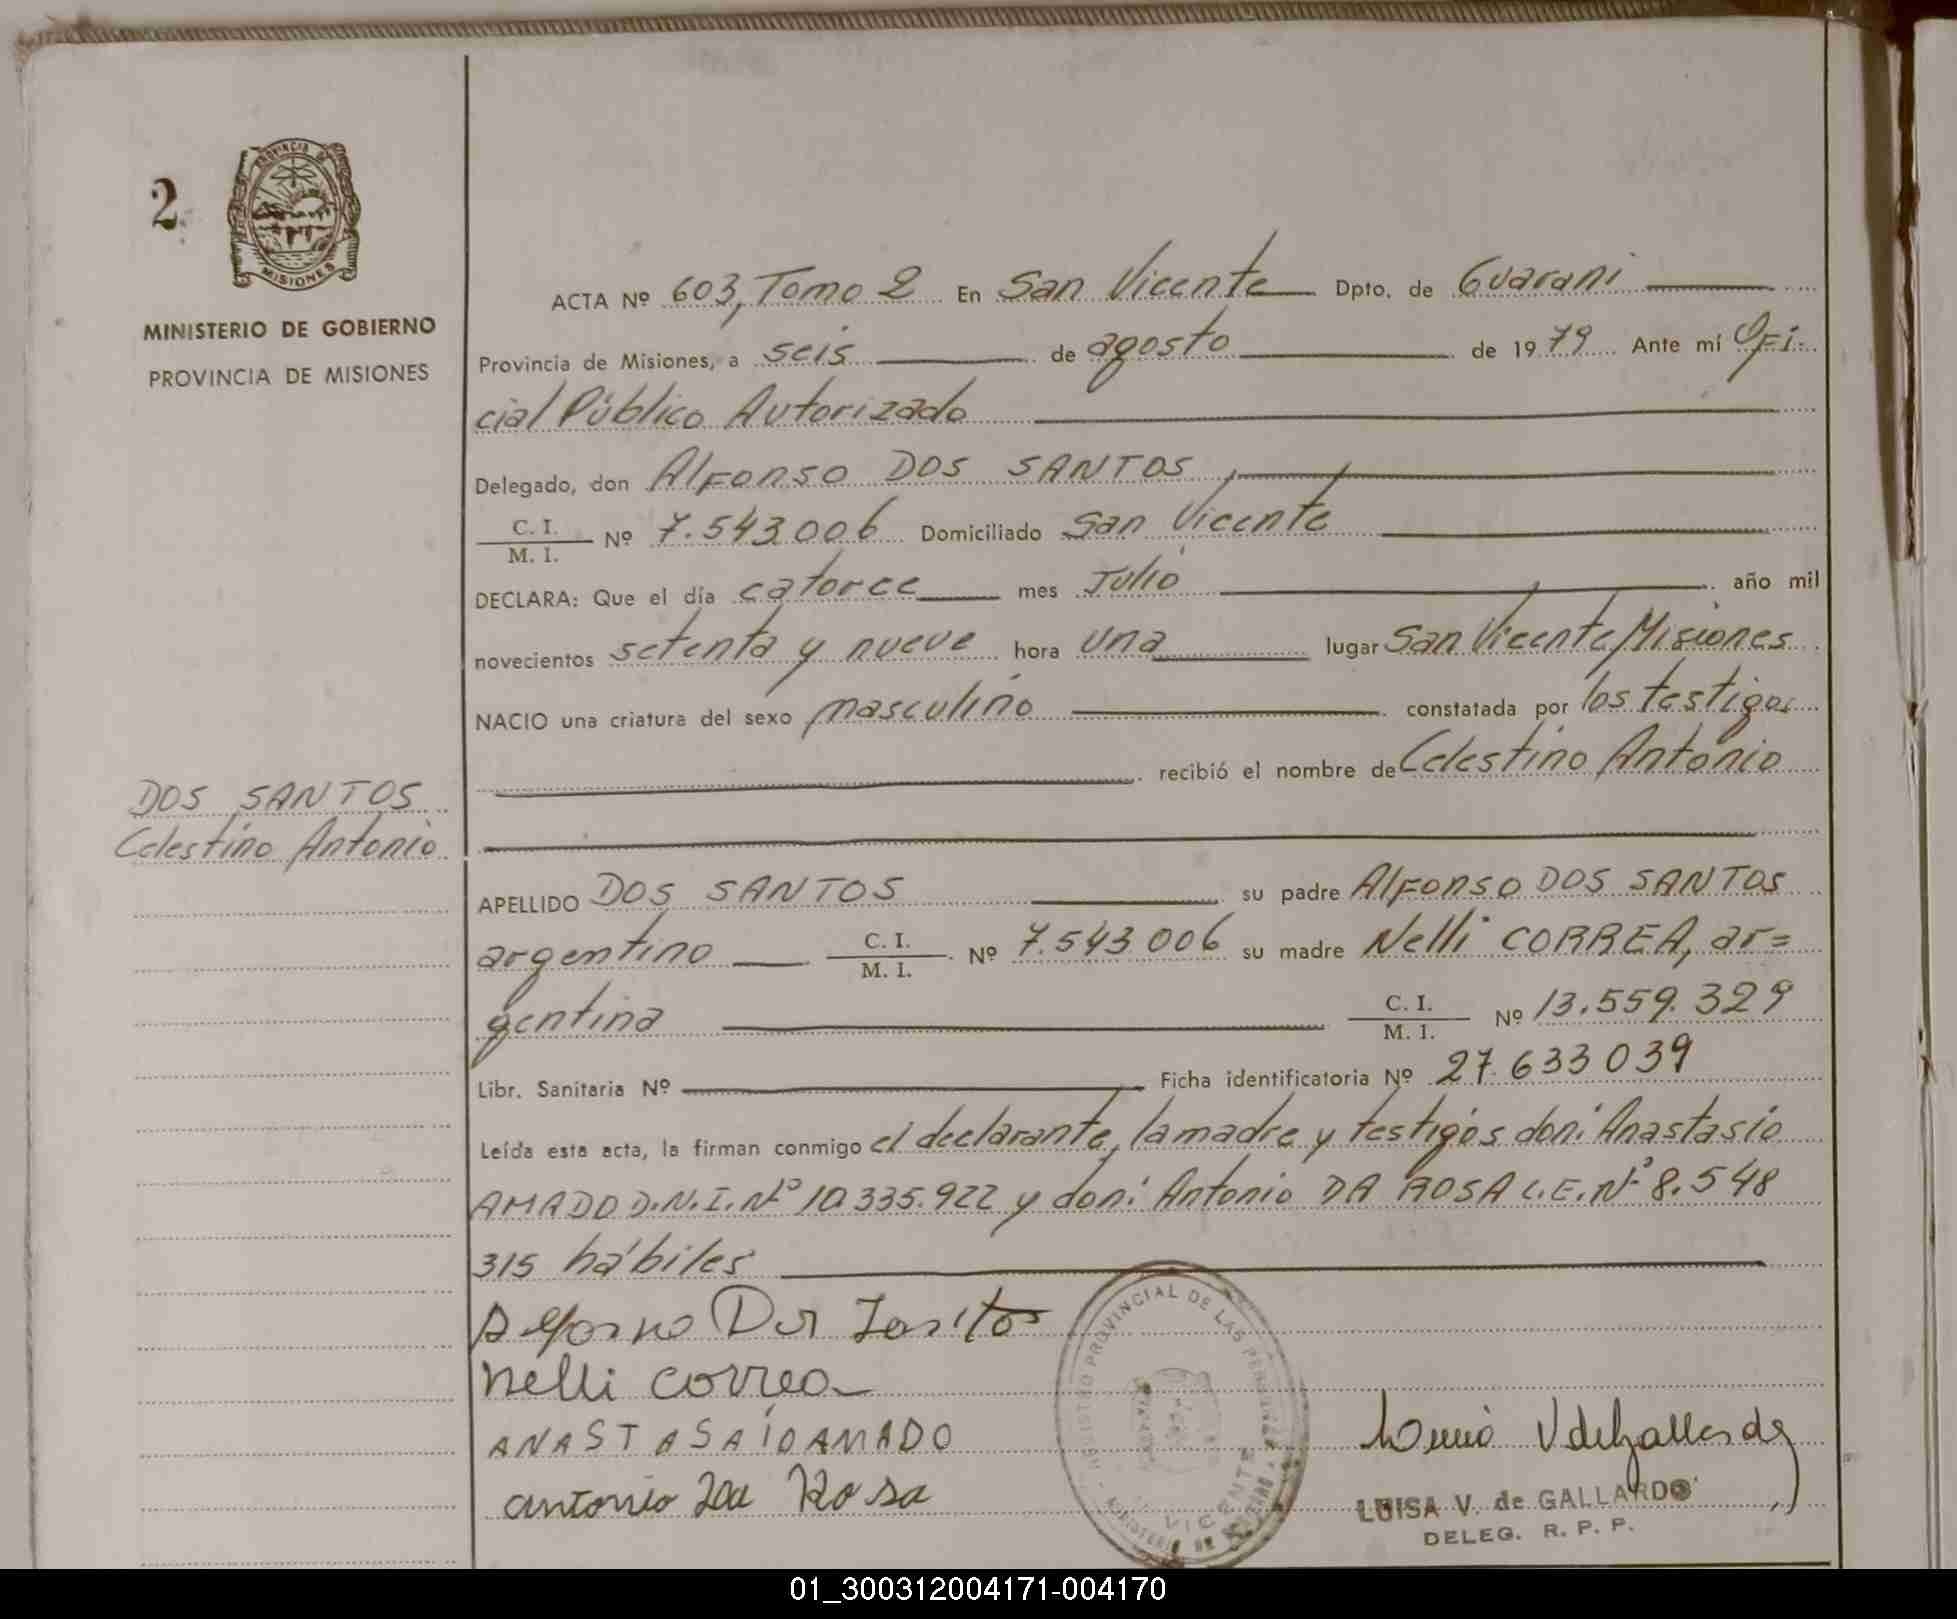 2
PROVINCIA DE
MISIONES
MINISTERIO DE GOBIERNO
PROVINCIA DE MISIONES
DOS SANTOS
Celestino Antonio
ACTA Nº 603, Tomo 2 En San Vicente Dpto. de Guarani
Provincia de Misiones, a seis de agosto de 1979 Ante mí Ofi-
cial Público Autorizado
Delegado, don Alfonso DOS SANTOS,
C. I. / M. I. Nº 7.543.006 Domiciliado San Vicente
DECLARA: Que el día catorce mes Julio año mil
novecientos setenta y nueve hora una lugar San Vicente, Misiones
NACIO una criatura del sexo masculino constatada por los testigos
recibió el nombre de Celestino Antonio
APELLIDO DOS SANTOS su padre Alfonso DOS SANTOS
argentino C. I. / M. I. Nº 7.543.006 su madre Nelli CORREA, ar=
gentina C. I. / M. I. Nº 13.559.329
Libr. Sanitaria Nº Ficha identificatoria Nº 27.633.039
Leída esta acta, la firman conmigo el declarante, la madre y testigos don: Anastasio
AMADO D.N.I. Nº 10.335.922 y don: Antonio DA ROSA L.E. Nº 8.548
315 hábiles
Nelli Correa
ANASTASAIO AMADO
antonio Da Rosa
REGISTRO PROVINCIAL DE LAS PERSONAS
VICENTE
LUISA V. de GALLARDO
DELEG. R. P. P.
01_300312004171-004170